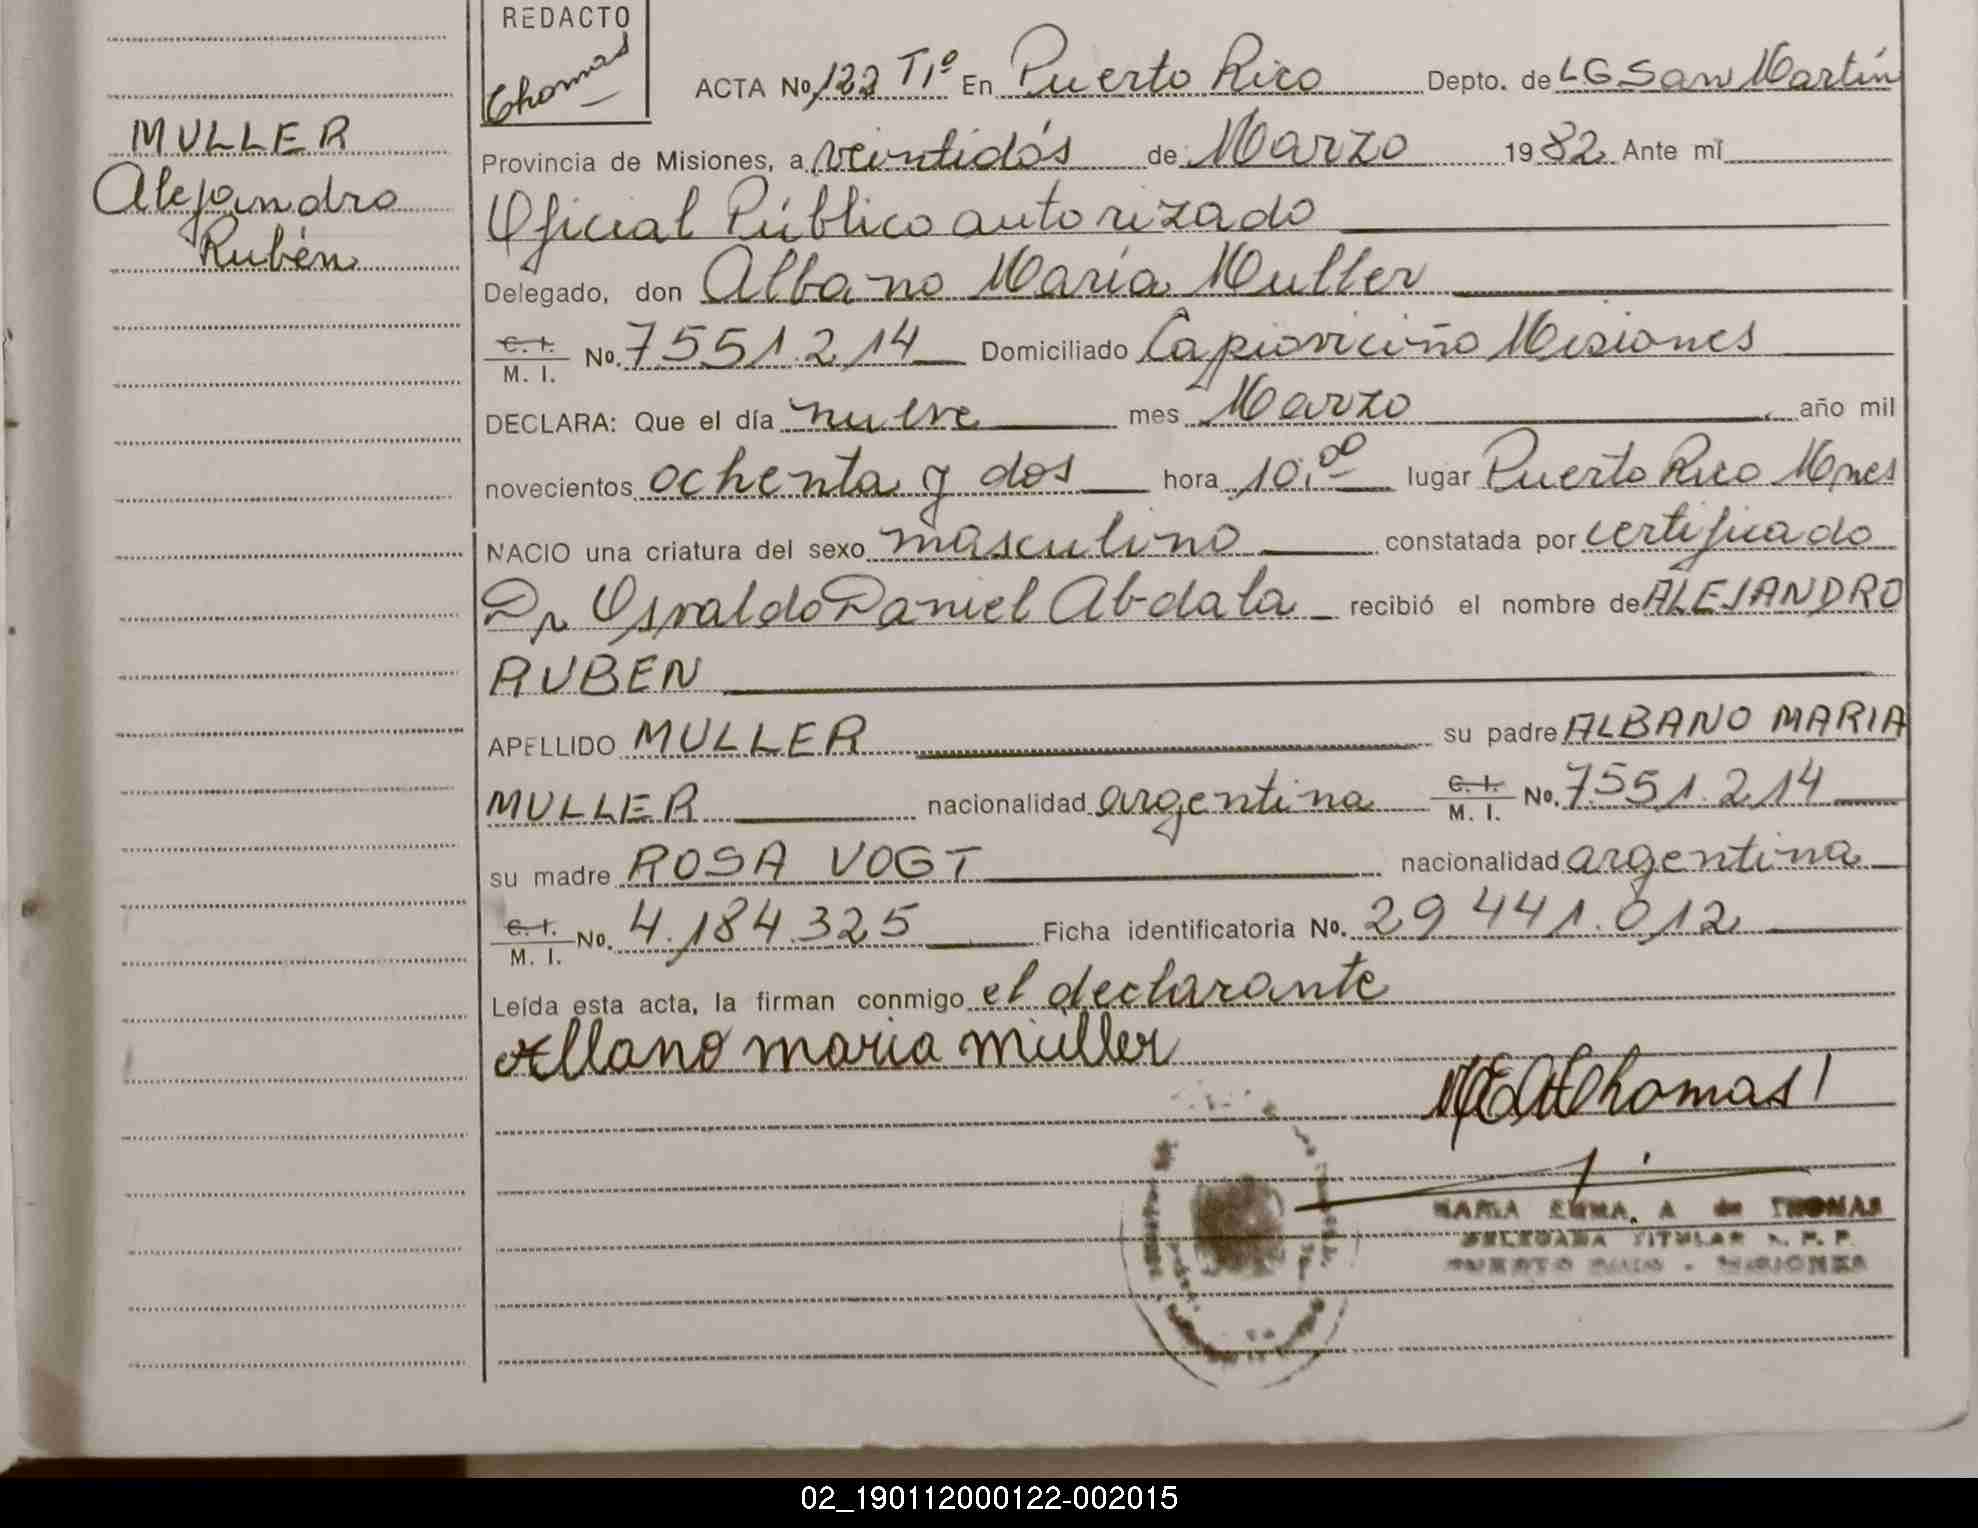 REDACTO
Thomas
MULLER
Alejandro
Rubén
ACTA No 122 T1º En Puerto Rico Depto. de LG San Martín
Provincia de Misiones, a veintidós de Marzo 1982 Ante mí
Oficial Público autorizado
Delegado, don Albano María Muller
C. I. / M. I. No. 7.551.214 Domiciliado Capioviciño Misiones
DECLARA: Que el día nueve mes Marzo año mil
novecientos ochenta y dos hora 10:00 lugar Puerto Rico Mnes
NACIO una criatura del sexo masculino constatada por certificado
Dr Osvaldo Daniel Abdala recibió el nombre de ALEJANDRO
RUBEN
APELLIDO MULLER su padre ALBANO MARIA
MULLER nacionalidad argentina C. I. / M. I. No. 7.551.214
su madre ROSA VOGT nacionalidad argentina
C. I. / M. I. No. 4.184.325 Ficha identificatoria No. 29 441.012
Leída esta acta, la firman conmigo el declarante
Albano maria müller
MEAThomas
MARIA EMMA. A de THOMAS
DELEGADA TITULAR R. P. P.
PUERTO RICO - MISIONES
02_190112000122-002015